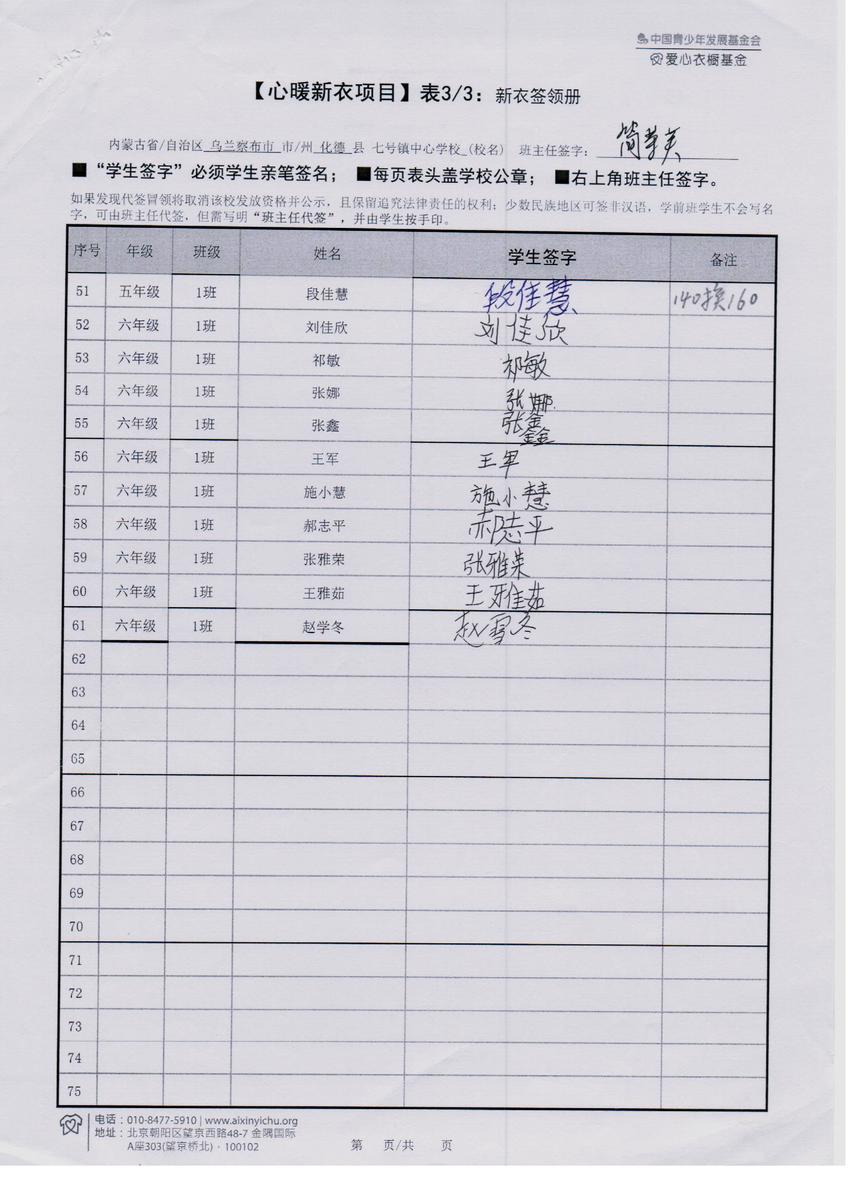 中国青少年发展基金会
爱心衣橱基金
【心暖新衣项目】表3/3：新衣签领册
内蒙古省/自治区 乌兰察布市 市/州 化德 县 七号镇中心学校 (校名) 班主任签字：
■“学生签字”必须学生亲笔签名；■每页表头盖学校公章；■右上角班主任签字。
如果发现代签冒领将取消该校发放资格并公示，且保留追究法律责任的权利；少数民族地区可签非汉语，学前班学生不会写名
字，可由班主任代签，但需写明“班主任代签”，并由学生按手印。
序号 年级 班级 姓名 学生签字 备注
51 五年级 1班 段佳慧 段佳慧 140换160
52 六年级 1班 刘佳欣 刘佳欣
53 六年级 1班 祁敏 祁敏
54 六年级 1班 张娜 张娜
55 六年级 1班 张鑫 张鑫
56 六年级 1班 王军 王军
57 六年级 1班 施小慧 施小慧
58 六年级 1班 郝志平 郝志平
59 六年级 1班 张雅荣 张雅荣
60 六年级 1班 王雅茹 王雅茹
61 六年级 1班 赵学冬 赵雪冬
62
63
64
65
66
67
68
69
70
71
72
73
74
75
电话：010-8477-5910 | www.aixinyichu.org
地址：北京朝阳区望京西路48-7 金隅国际
A座303(望京桥北)·100102
第 页/共 页